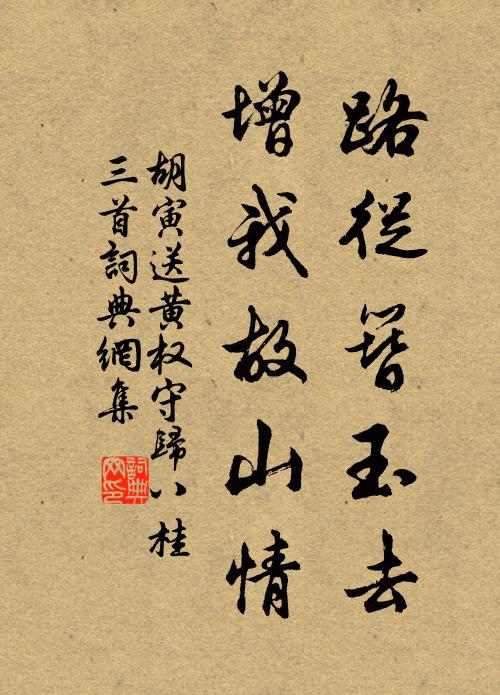 路從簪玉去
增我故山情
胡寅送黃权守歸八桂
三首詞典網集
詞典网印